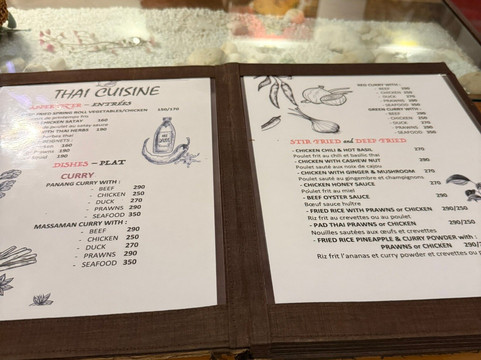 THAI CUISINE
ENTRÉES
FRIED SPRING ROLL VEGETABLES/CHICKEN 150/170
de printemps frit
CHICKEN SATAY 160
de poulet au satay sauce
WITH THAI HERBS 190
herbes thai
290
DISHES – PLAT
CURRY
PANANG CURRY WITH :
- BEEF 290
- CHICKEN 250
- DUCK 270
- PRAWNS 290
- SEAFOOD 350
MASSAMAN CURRY WITH :
- BEEF 290
- CHICKEN 250
- DUCK 270
- PRAWNS 290
- SEAFOOD 350
RED CURRY WITH :
- BEEF 290
- CHICKEN 250
- DUCK 270
- PRAWNS 290
- SEAFOOD 350
GREEN CURRY WITH :
- BEEF 290
- CHICKEN 250
- DUCK 270
- PRAWNS 290
- SEAFOOD 350
STIR FRIED and DEEP FRIED
- CHICKEN CHILI & HOT BASIL 270
Poulet frit au chili et basilic thai
- CHICKEN WITH CASHEW NUT 290
Poulet sauté au noix de cajou
- CHICKEN WITH GINGER & MUSHROOM 270
Poulet sauté au gingembre et champignons
- CHICKEN HONEY SAUCE 270
Poulet frit au miel
- BEEF OYSTER SAUCE 290
Bœuf sauce huître
- FRIED RICE WITH PRAWNS or CHICKEN 290/250
Riz frit au crevettes ou au poulet
- PAD THAI PRAWNS or CHICKEN 290/250
Nouilles sautées aux œufs et crevettes
- FRIED RICE PINEAPPLE & CURRY POWDER with :
PRAWNS or CHICKEN 290/
Riz frit l'ananas et curry powder et crevettes ou